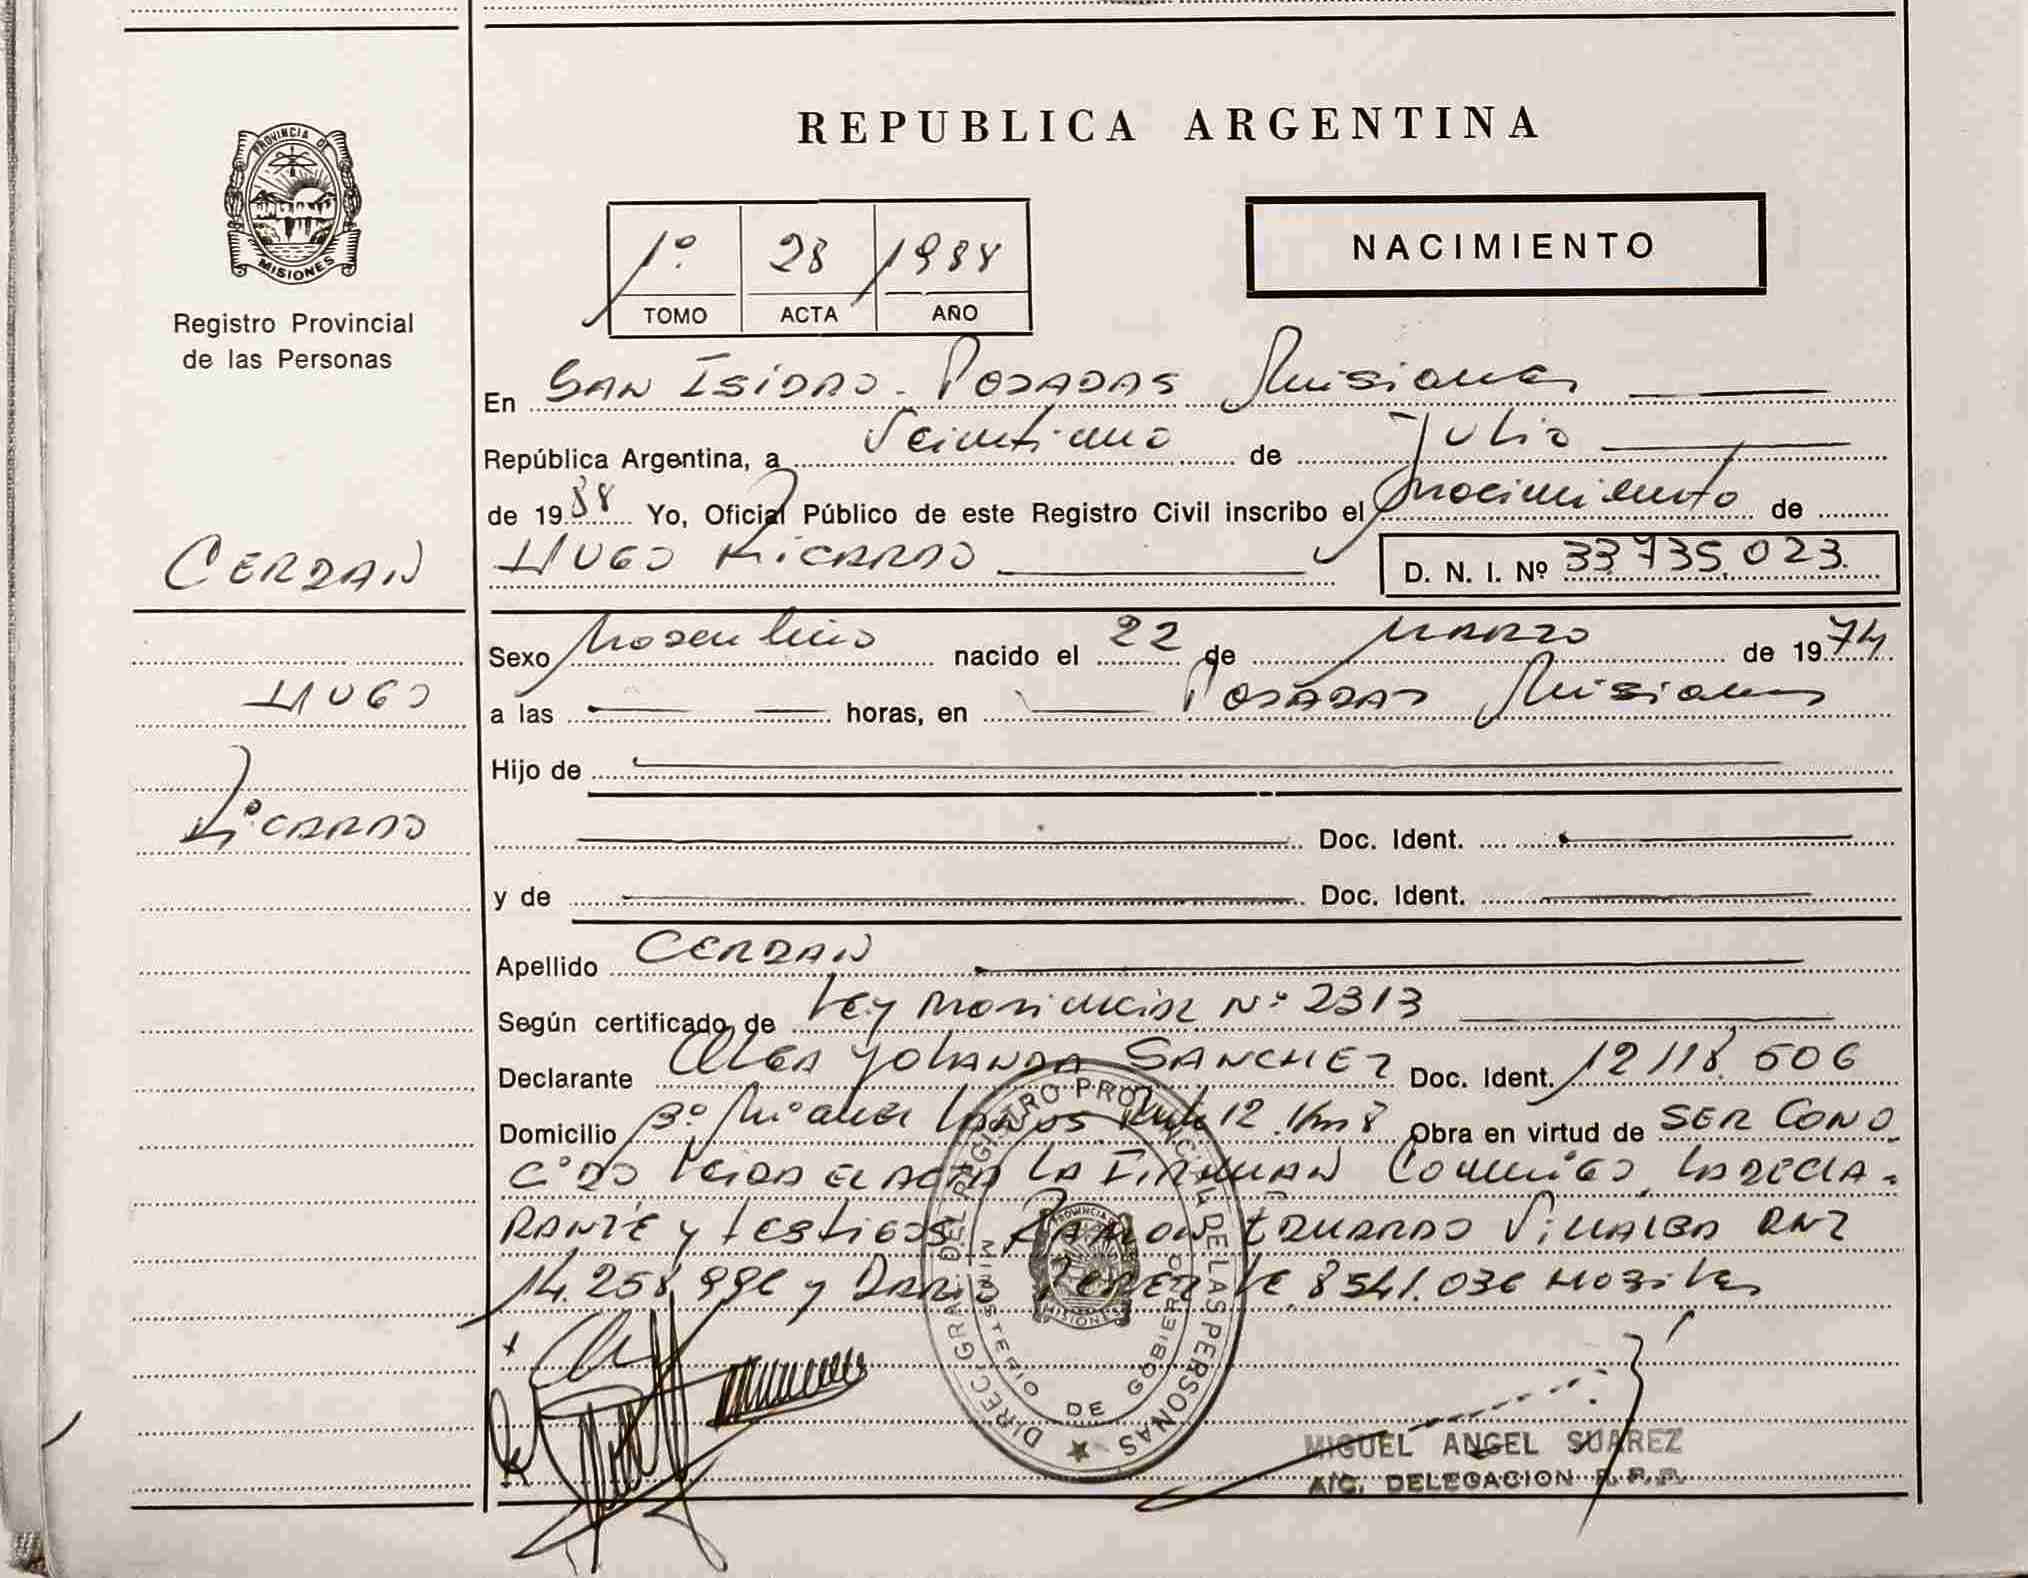 REPUBLICA ARGENTINA
PROVINCIA DE
MISIONES
Registro Provincial
de las Personas
1º 28 1988
TOMO ACTA AÑO
NACIMIENTO
En SAN ISIDRO - POSADAS Misiones
República Argentina, a Veintiuno de Julio
de 1988 Yo, Oficial Público de este Registro Civil inscribo el nacimiento de
CERDAN
HUGO RICARDO D. N. I. Nº 33.735.023
Sexo Masculino nacido el 22 de MARZO de 1974
HUGO
a las horas, en POSADAS Misiones
Hijo de
RICARDO
Doc. Ident.
y de Doc. Ident.
Apellido CERDAN
Según certificado de Ley Provincial Nº 2313
Declarante OLGA YOLANDA SANCHEZ Doc. Ident. 12.118.506
Domicilio Bº Miguel Lanus Ruta 12 Km 8 Obra en virtud de SER CONO
CIDO Leida EL ACTA LA FIRMAN Conmigo, LA DECLA-
RANTE y testigos RAMON EDUARDO VILLALBA DNI
14.258.996 y DARIO PEREZ LE 8541.036 HABILES
DIREC. GRAL. DEL REGISTRO PROVINCIAL DE LAS PERSONAS
MINISTERIO DE GOBIERNO
PROVINCIA
MISIONES
MIGUEL ANGEL SUAREZ
A/C. DELEGACION R.P.P.